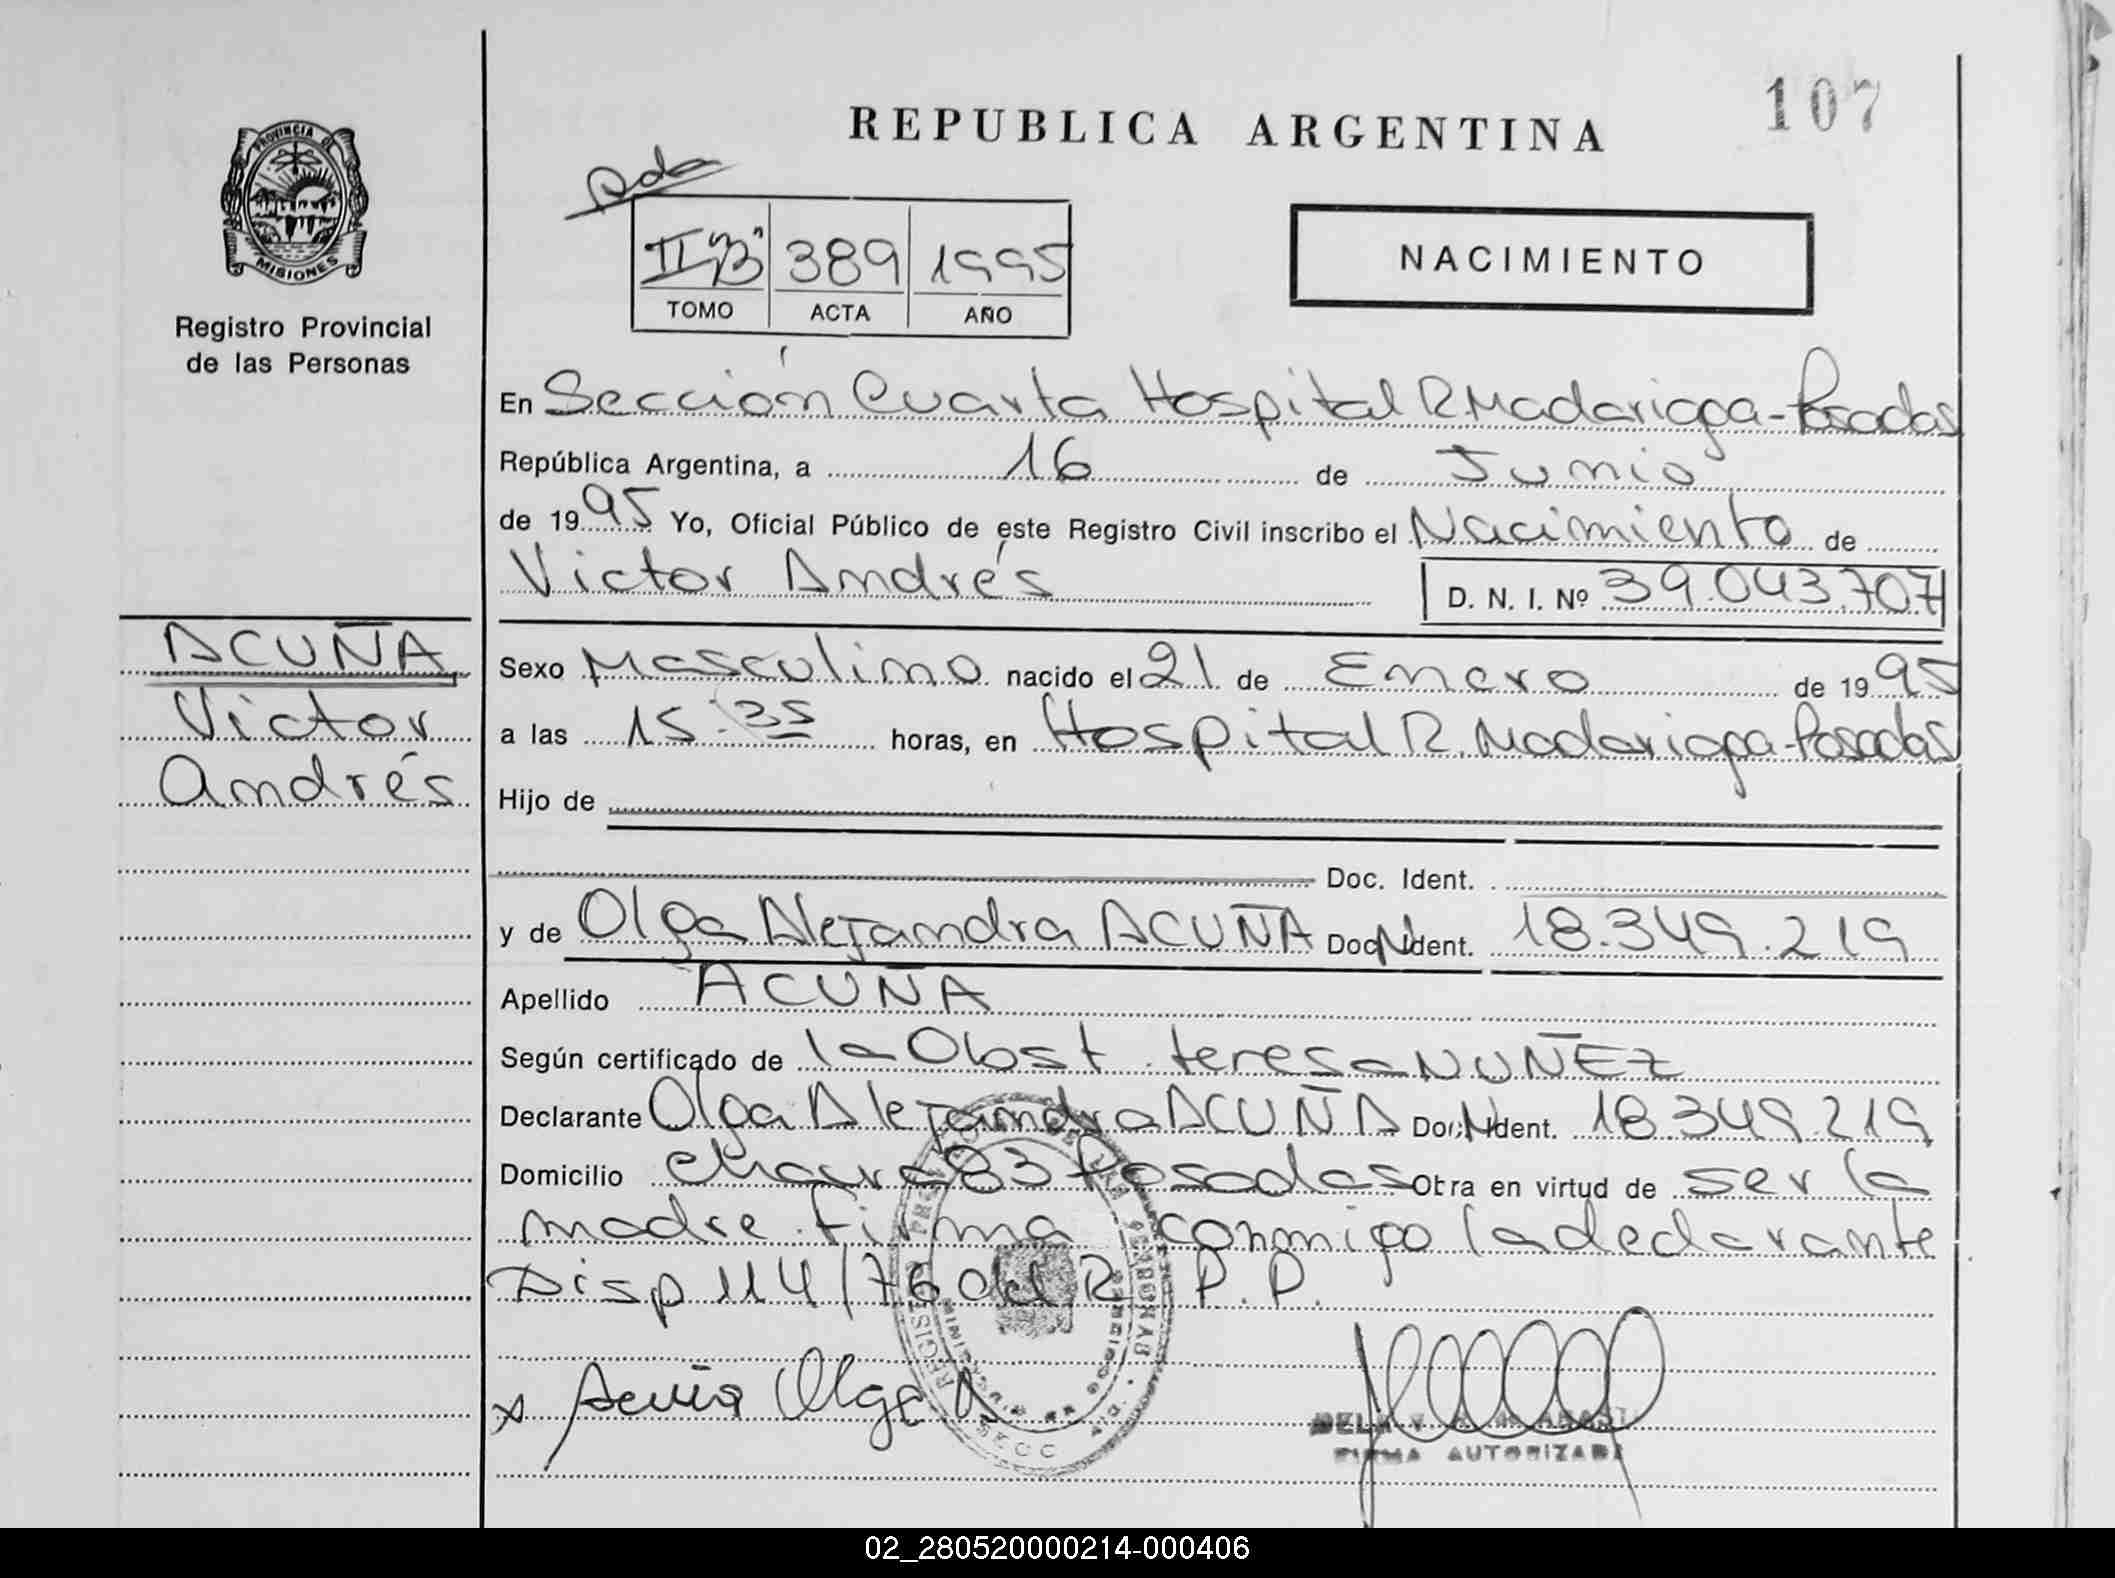 107
REPUBLICA ARGENTINA
PROVINCIA D
MISIONES
Registro Provincial
de las Personas
II "B" 389 1995
TOMO ACTA AÑO
NACIMIENTO
En Sección Cuarta Hospital R. Madariaga - Posadas
República Argentina, a 16 de Junio
de 1995 Yo, Oficial Público de este Registro Civil inscribo el Nacimiento de
Victor Andrés D. N. I. Nº 39.043.707
ACUÑA
Victor
Andrés
Sexo Masculino nacido el 21 de Enero de 1995
a las 15:35 horas, en Hospital R. Madariaga - Posadas
Hijo de
Doc. Ident.
y de Olga Alejandra ACUÑA Doc. Ident. 18.349.219
Apellido ACUÑA
Según certificado de la Obst. teresa NUÑEZ
Declarante Olga Alejandra ACUÑA Doc. Ident. 18.349.219
Domicilio chacra 83 Posadas Otra en virtud de ser la
madre. firma conmigo la declarante
Disp 114/76 del R. P. P.
x Acuña Olga A
FIRMA AUTORIZADA
02_280520000214-000406